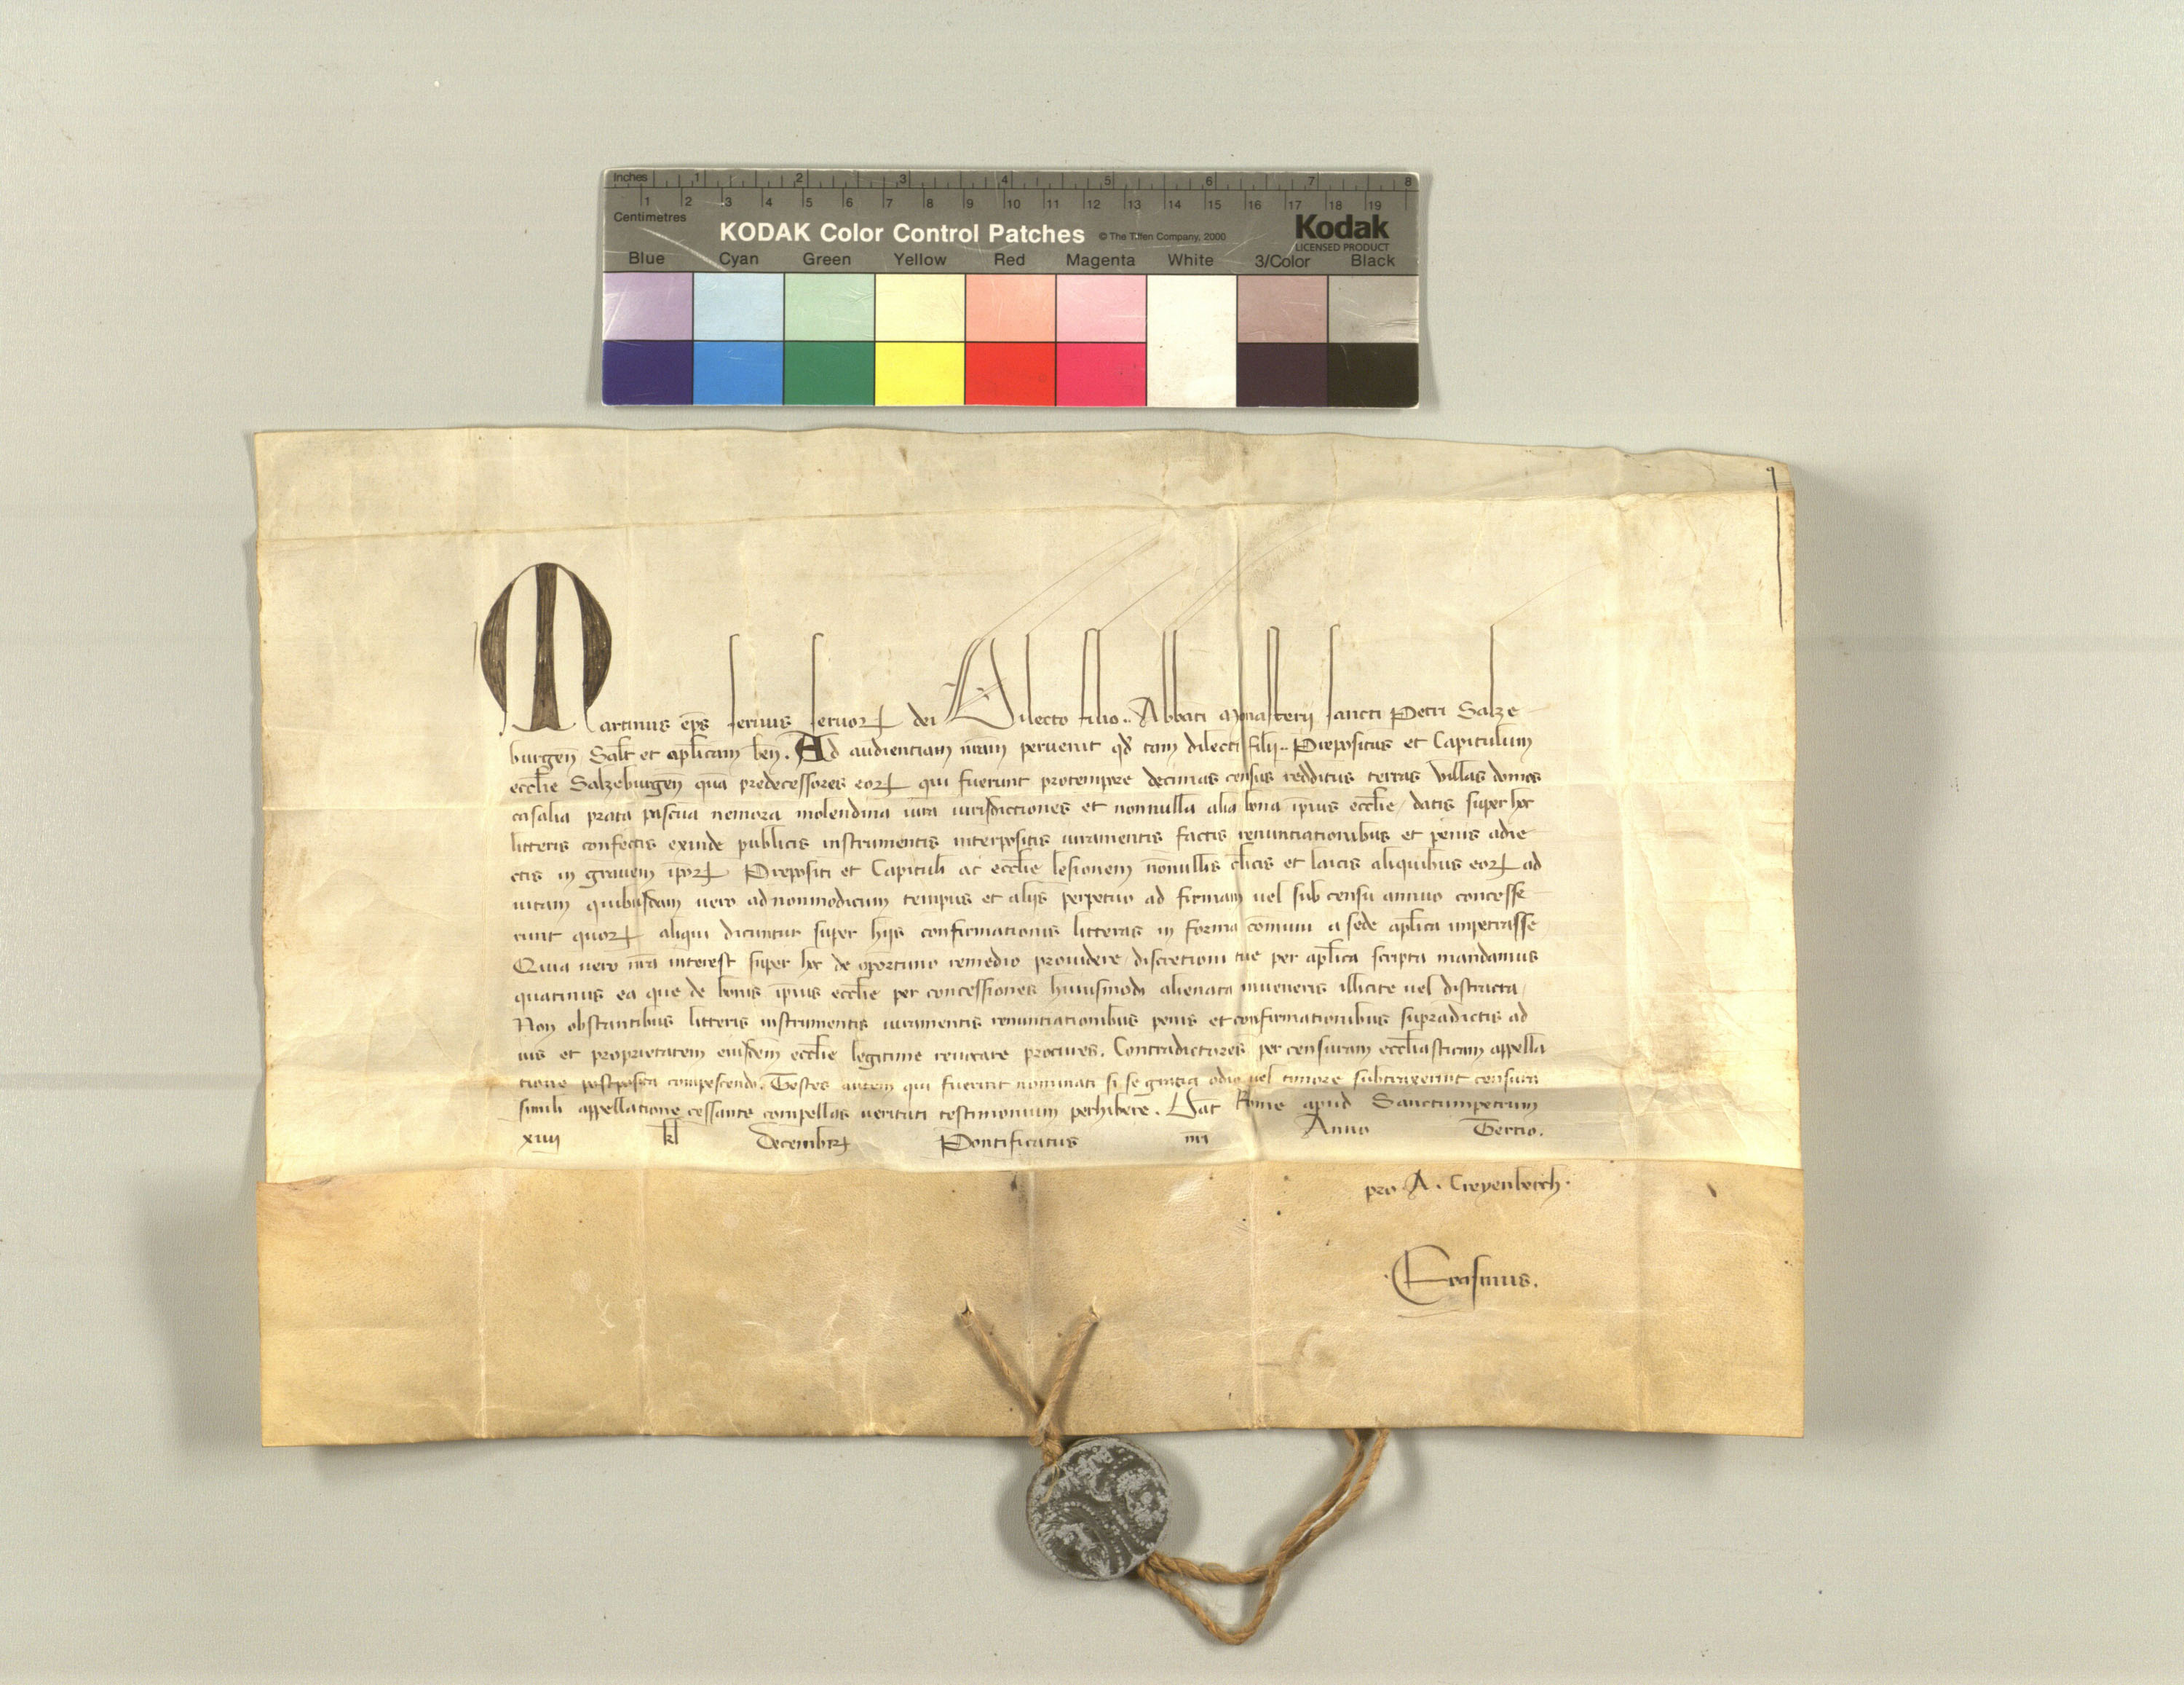 Inches 1 2 3 4 5 6 7 8
1 2 3 4 5 6 7 8 9 10 11 12 13 14 15 16 17 18 19
Centimetres
KODAK Color Control Patches © The Tiffen Company, 2000 Kodak
LICENSED PRODUCT
Blue Cyan Green Yellow Red Magenta White 3/Color Black
Martinus ep̄s seruus seruoꝝ dei Dilecto filio.. Abbati Monasterij sancti Petri Salze
burgen̄ Salt̄ et apl̄icam ben̄. Ad audientiam nr̄am peruenit qd̄ tam dilecti filij.. Prepositus et Capitulum
eccl̄ie Salzeburgen̄ qua̅ predecessores eoꝝ qui fuerunt protempore decimas census redditus terras villas domos
casalia prata pascua nemora molendina iura iurisdictiones et nonnulla alia bona ip̄ius eccl̄ie / datis super hoc
litteris confectis exinde publicis instrumentis interpositis iuramentis factis renuntiationibus et penis adie
ctis in grauem ip̄oꝝ Prepositi et Capituli ac eccl̄ie lesionem no̅nullis cl̄icis et laicis aliquibus eoꝝ ad
uitam quibusdam uero ad nonmodicum tempus et alijs perpetuo ad firmam uel sub censu annuo concesse
runt quoꝝ aliqui dicuntur super hijs confirmationis litteras in forma co̅muni a sede apl̄ica impetrasse
Quia uero nr̄a interest super hoc de oportuno remedio prouidere / discretioni tue per apl̄ica scripta mandamus
quatinus ea que de bonis ip̄ius eccl̄ie per concessiones huiusmodi alienata inueneris illicite uel distracta /
Non obstantibus litteris instrumentis iuramentis renuntiationibus penis et confirmationibus supradictis ad
ius et proprietatem eiusdem eccl̄ie legitime reuocare procures. Contradictores per censuram eccl̄iasticam appella
tione postposita compescendo. Testes autem qui fuerint nominati si se gratia odio uel timore subtraxerint censura
simili appellatione cessante compellas ueritati testimonium perhibere. Dat̄ Rome apud Sanctumpetrum
xiiij kl̄ Decembrꝝ Pontificatus nr̄i Anno Tertio.
pro A. Creyenberch.
Erasmus.